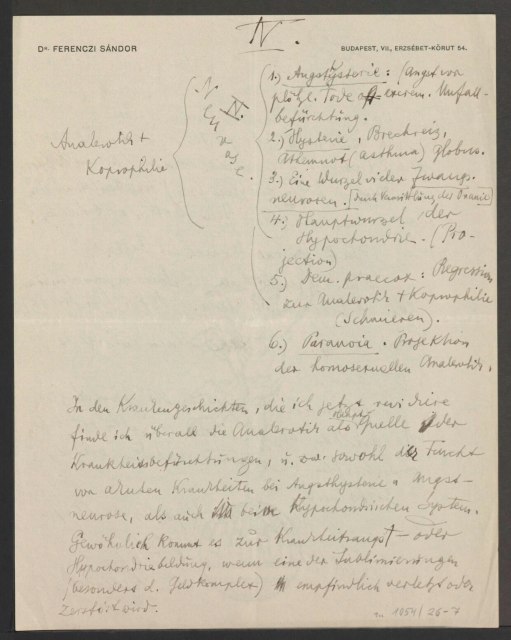 IV.
Dr. FERENCZI SÁNDOR
BUDAPEST, VII., ERZSÉBET-KÖRUT 54.
Analerotik +
Koprophilie
IV.
Neurose.
1.) Angsthysterie: (Angst vor
plötzl. Tode extrem. Unfall-
befürchtung.
2.) Hysterie, Brechreiz,
Athemnot (asthma) globus.
3.) Eine Wurzel vieler Zwangs-
neurosen. (durch der Onanie)
4.) Hauptwurzel der
Hypochondrie. (Pro-
jection)
5.) Dem. praecox: Regression
zur Analerotik + Koprophilie
(Schmieren).
6.) Paranoia. Projektion
der homosexuellen Analerotik.
In den Krankengeschichten, die ich jetzt revidire
finde ich überall die Analerotik als Hauptquelle der
Krankheitsbefürchtungen, u. zw. sowohl der Furcht
von akuten Krankheiten bei Angsthysterie u Angst-
neurose, als auch beim Hypochondrischen System.
Gewöhnlich kommt es zur Krankheitsangst- oder
Hypochondriebildung, wenn eine der Sublimierungen
(besonders d. Geldkomplex) empfindlich verletzt oder
zerstört wird.
1054/26-7